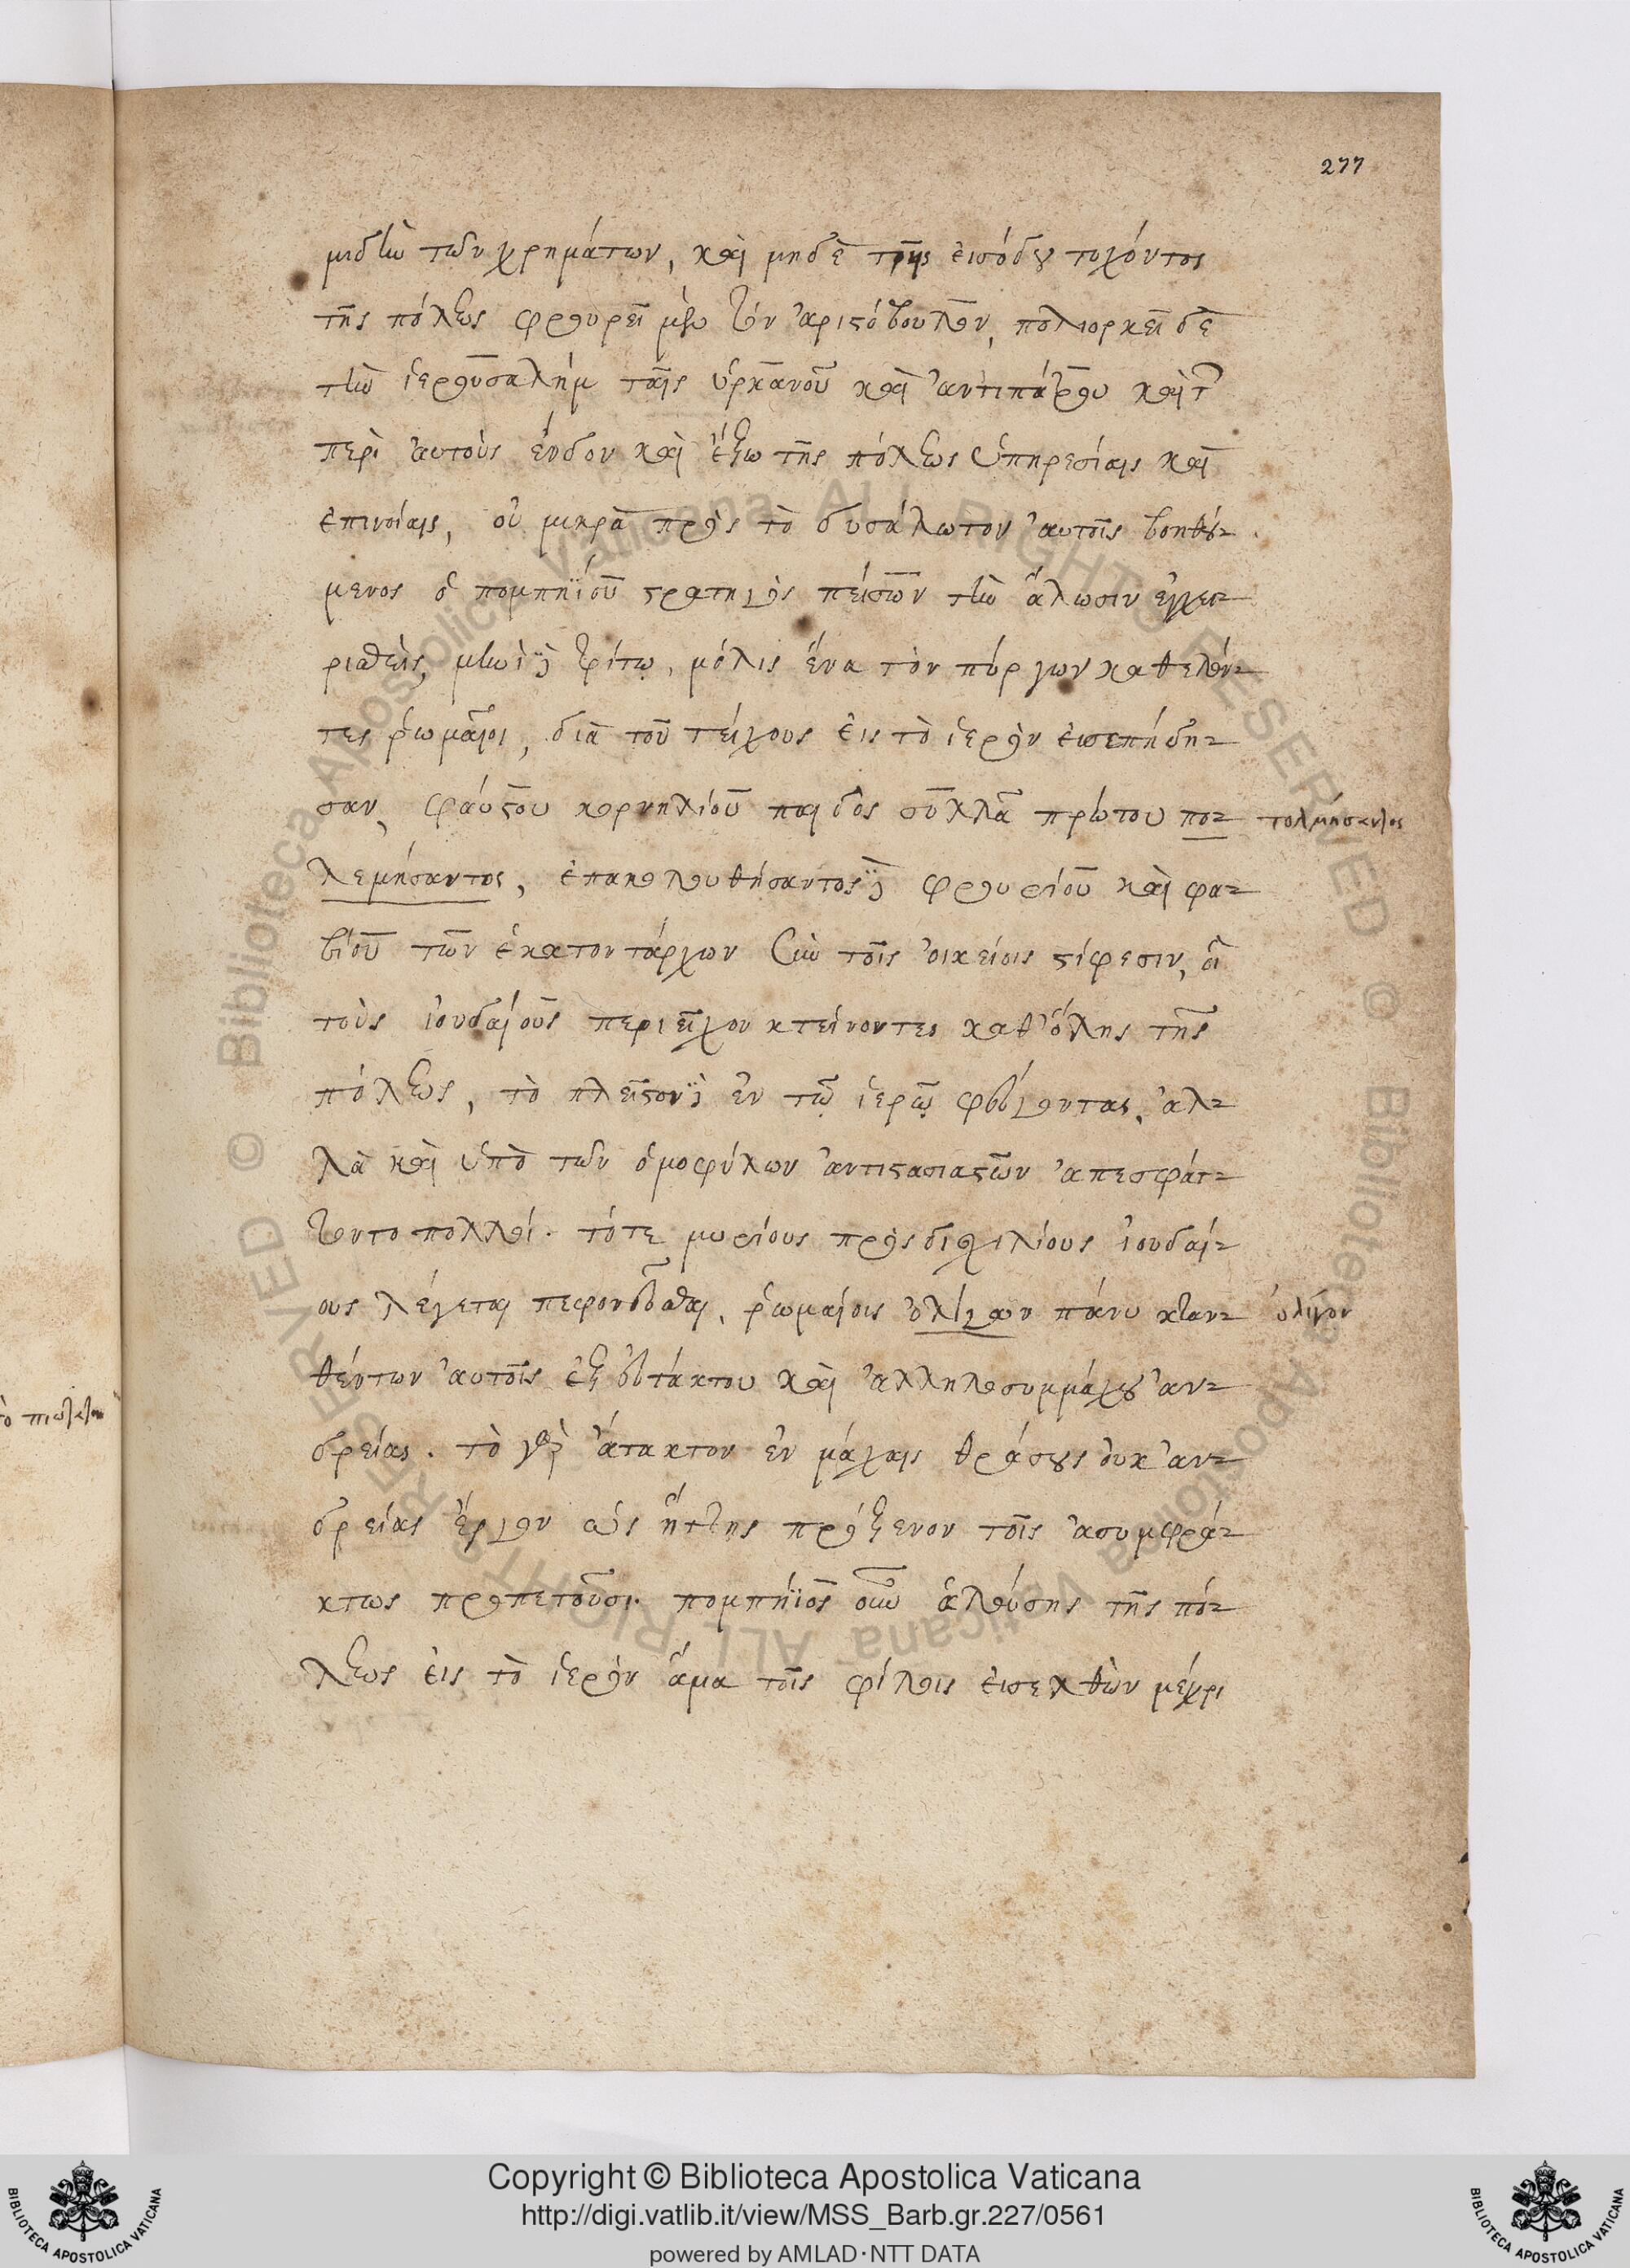 277
μιδὴν τῶν χρημάτων, καὶ μηδὲ τῆς εἰσόδου τυχόντος
τῆς πόλεως φρουρεῖ μὲν τὸν ἀριστόβουλον, πολιορκεῖ δὲ
τὴν ἱερουσαλὴμ ταῖς ὑρκανοῦ καὶ ἀντιπάτρου καὶ τ
περὶ αὐτοὺς ἔνδον καὶ ἔξω τῆς πόλεως ὑπηρεσίαις καὶ
ἐπινοίαις, οὐ μικρὰ πρὸς τὸ δυσάλωτον αὐτοῖς βοηθού-
μενος ὁ πομπηΐου στρατηγὸς πείσων τὴν ἅλωσιν ἐγχει-
ρισθεὶς, μηνὶ δὲ τρίτῳ, μόλις ἕνα τὸν πύργων καθελόν-
τες ῥωμαῖοι, διὰ τοῦ τείχους εἰς τὸ ἱερὸν εἰσεπήδη-
σαν, φαύστου κορνηλίου παιδὸς σύλλα πρώτου πο- τολμήσαντος
λεμήσαντος, ἐπακολουθήσαντος δὲ φρουρίου καὶ φα-
βίου τῶν ἑκατοντάρχων σὺν τοῖς οἰκείοις στίφεσιν, οἳ
τοὺς ἰουδαίους περιεῖχον κτείνοντες καθ' ὅλης τῆς
πόλεως, τὸ πλεῖστον δὲ ἐν τῷ ἱερῷ φεύγοντας, ἀλ-
λὰ καὶ ὑπὸ τῶν ὁμοφύλων ἀντιστασιαστῶν ἀπεσφάτ-
τοντο πολλοί. τότε μυρίους πρὸς δισχιλίους ἰουδαί-
ους λέγεται πεφονεῦσθαι, ῥωμαίοις ὀλίγων πάνυ κταν- ὀλίγον
θέντων αὐτοῖς ἐξ εὐτάκτου καὶ ἀλληλοσυμμάχου ἀν-
δρείας. τὸ γὰρ ἄτακτον ἐν μάχαις θράσους οὐκ ἀν-
δρείας ἔργον ὡς ἥττης πρόξενον τοῖς ἀσυμφρά-
κτως προπετοῦσι. πομπήϊος οὖν ἁλούσης τῆς πό-
λεως εἰς τὸ ἱερὸν ἅμα τοῖς φίλοις εἰσελθὼν μέχρι
Copyright © Biblioteca Apostolica Vaticana
http://digi.vatlib.it/view/MSS_Barb.gr.227/0561
powered by AMLAD·NTT DATA